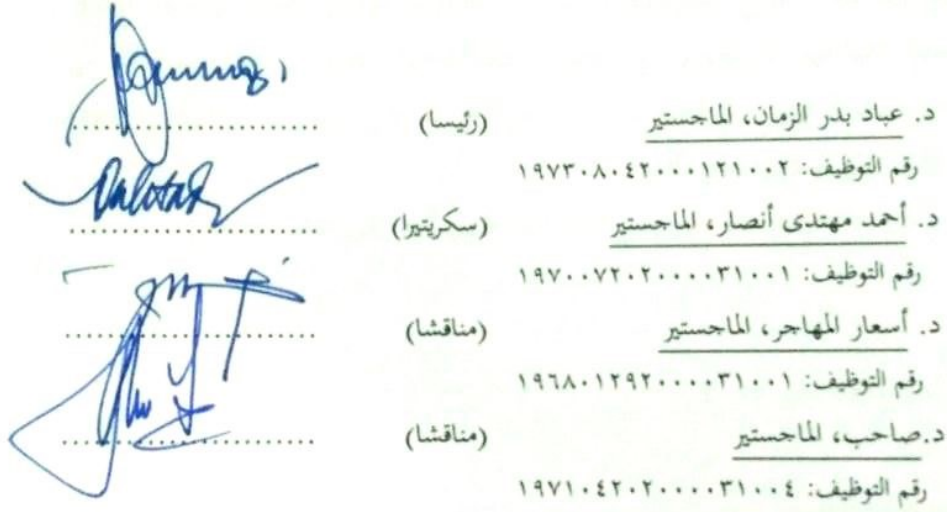 د. عباد بدر الزمان، الماجستير (رئيسا) ....................
رقم التوظيف: ١٩٧٣٠٨٠٤٢٠٠٠١٢١٠٠٢
د. أحمد مهتدى أنصار، الماجستير (سكريتيرا) ....................
رقم التوظيف: ١٩٧٠٠٧٢٠٢٠٠٠٠٣١٠٠١
د. أسعار المهاجر، الماجستير (مناقشا) ....................
رقم التوظيف: ١٩٦٨٠١٢٩٢٠٠٠٠٣١٠٠١
د.صاحب، الماجستير (مناقشا) ....................
رقم التوظيف: ١٩٧١٠٤٢٠٢٠٠٠٠٣١٠٠٤